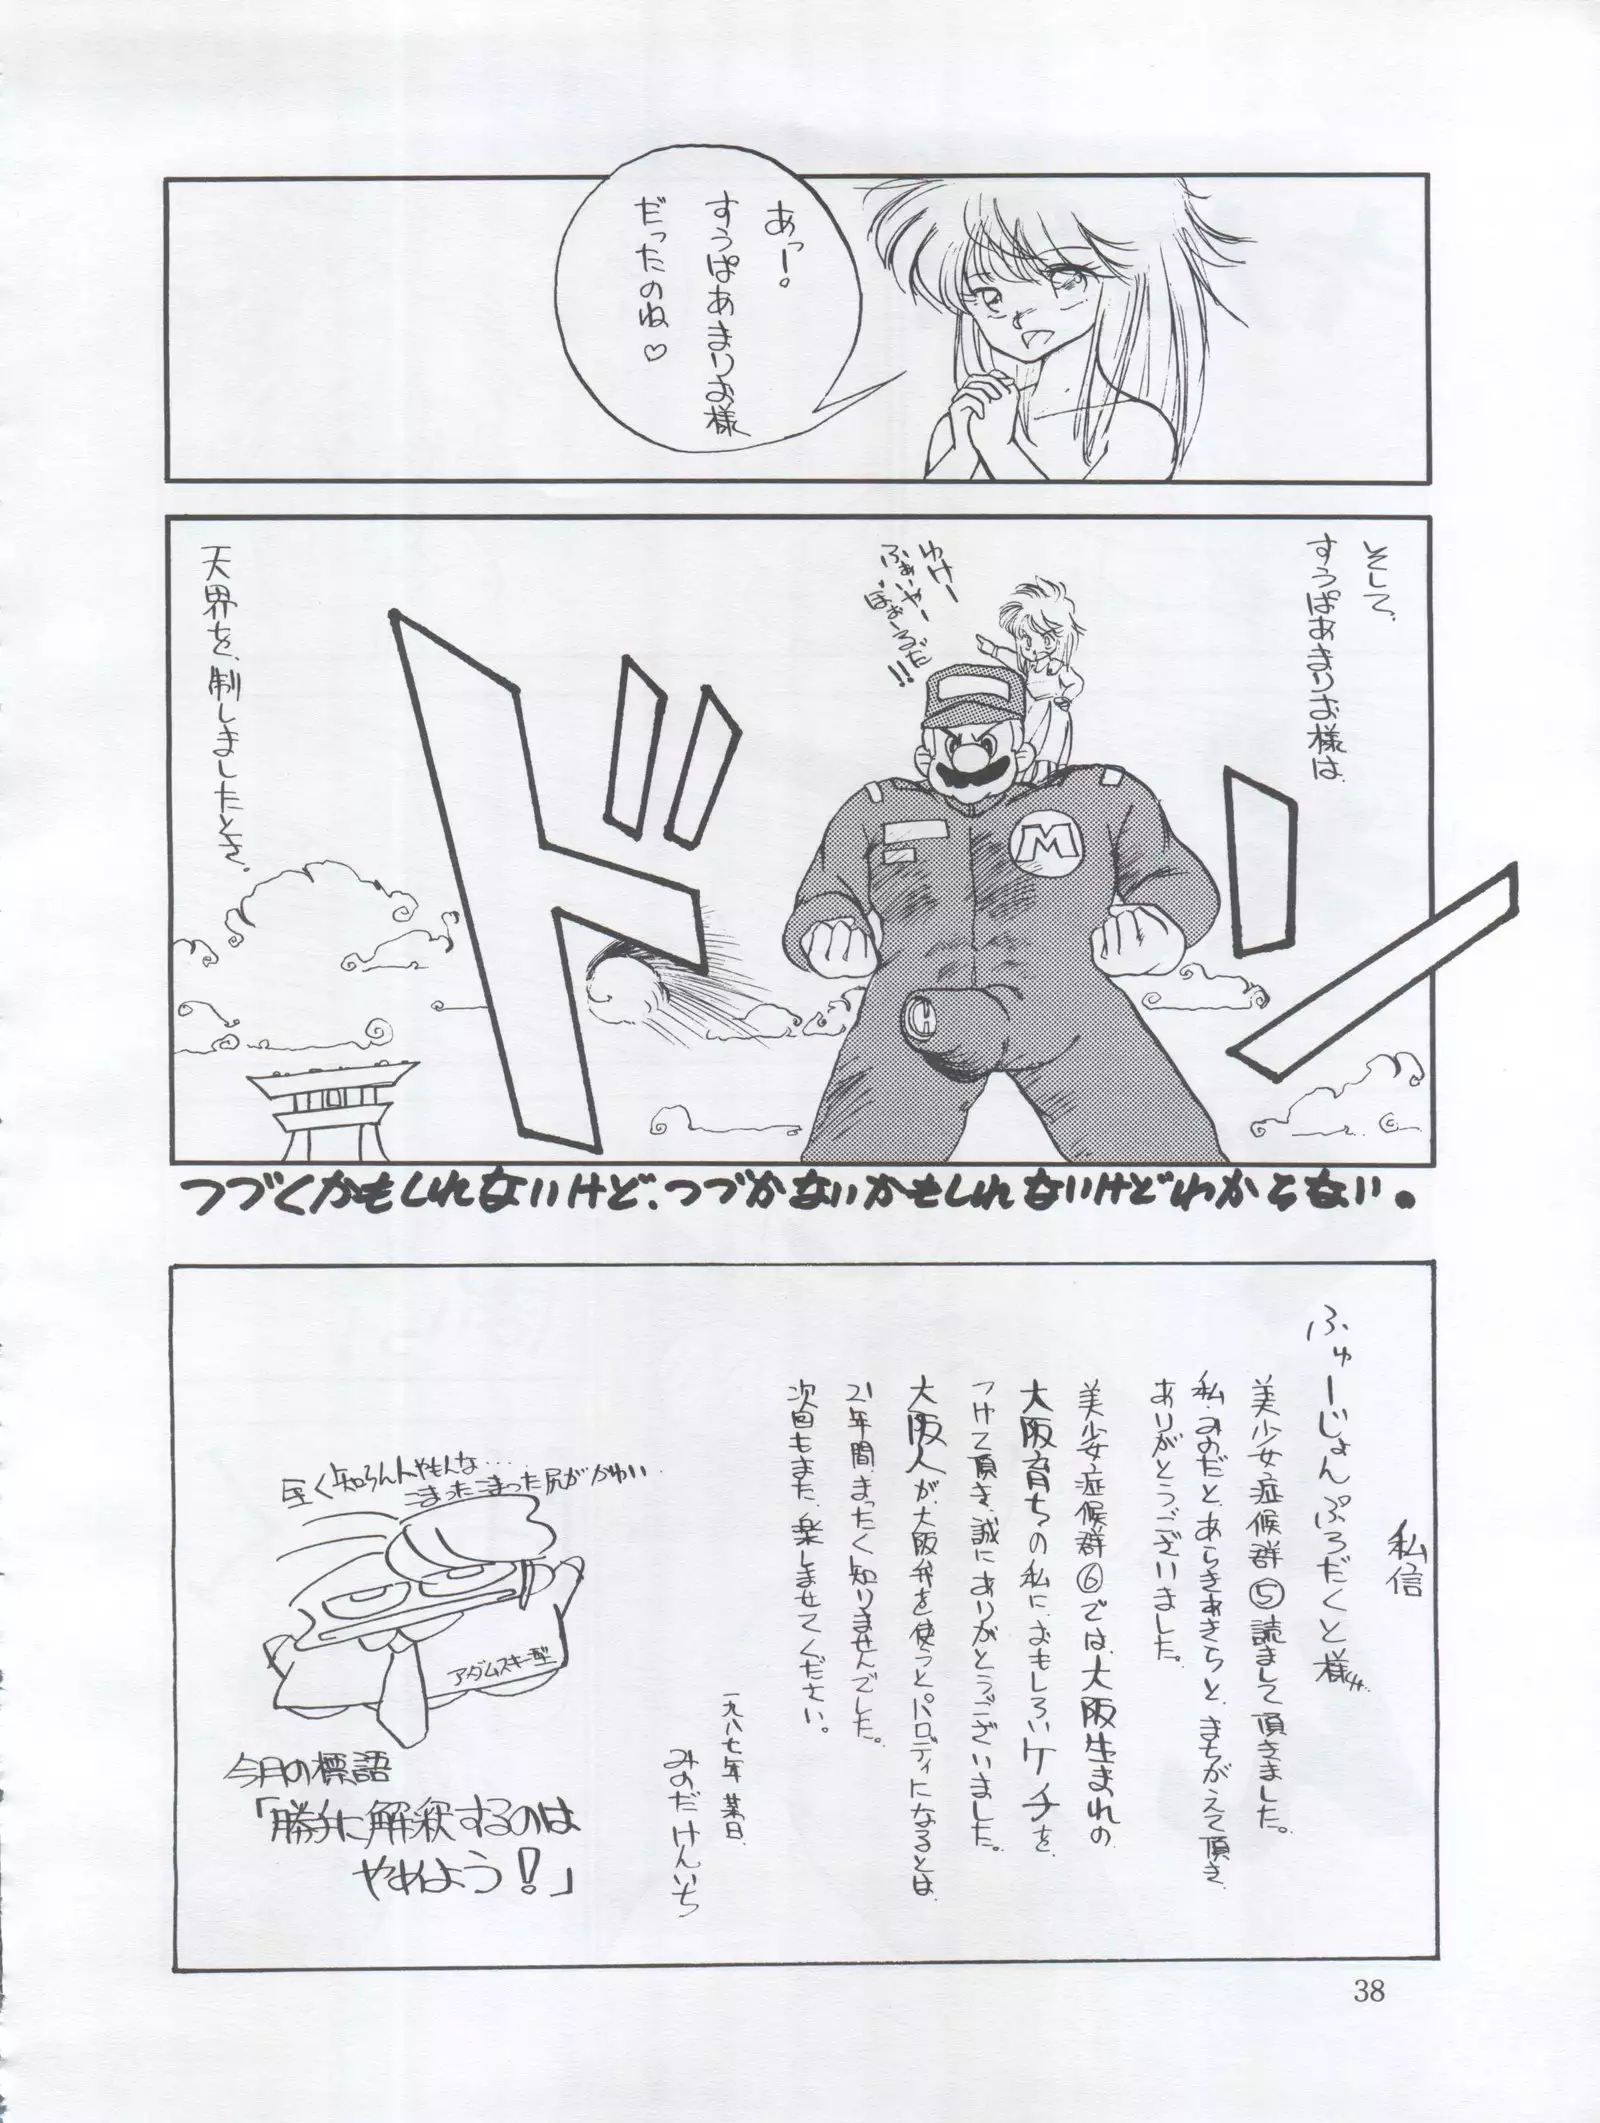 あっ!
すうぱあまりお様
だったのね♡
そして、
すうぱあまりお様は
ゆけー
ふぁいやー
ぼおーるだ!!
M
ドドン
天界を、制しましたとさ。
つづくかもしれないけど、つづかないかもしれないけどわからない。
私信
ふゅーじょんぷろだくと様
美少女症候群⑤読まして頂きました。
私、みのだと、あらきあきらと、まちがえて頂き
ありがとうございました。
美少女症候群⑥では、大阪生まれの
大阪育ちの私に、おもしろいケチを
つけて頂き、誠にありがとうございました。
大阪人が、大阪弁を使うとパロディになるとは
21年間、まったく知りませんでした。
次回もまた、楽しませてください。
一九八七年 某日
みのだけんいち
早く知らんトやもんな…
こまったこまった尻がかゆい
アダムスキー型
今月の標語
「勝手に解釈するのは
やめよう!」
38